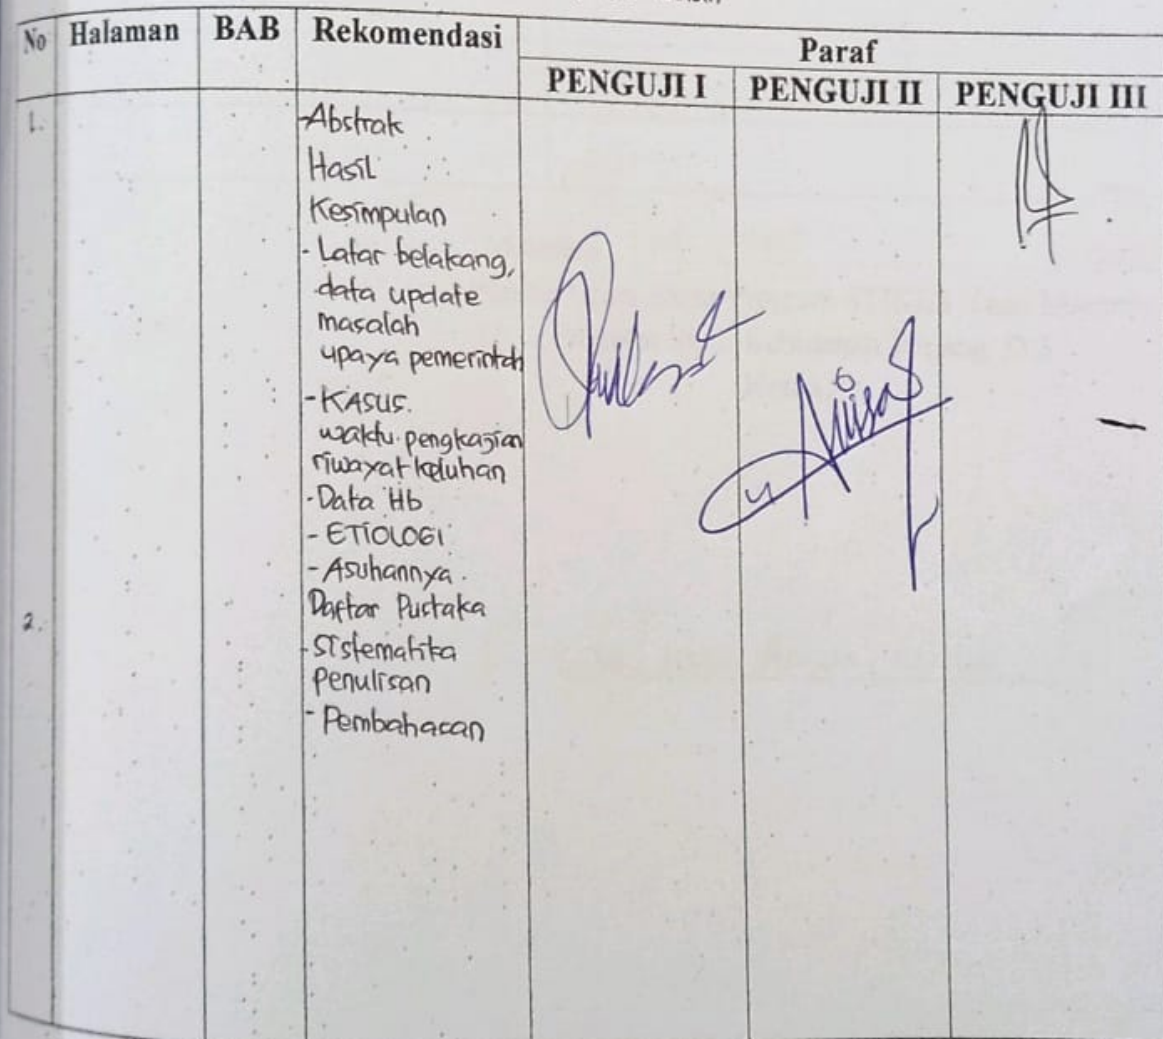 No Halaman BAB Rekomendasi Paraf
PENGUJI I PENGUJI II PENGUJI III
1.
-Abstrak
Hasil
Kesimpulan
- Latar belakang,
data update
masalah
upaya pemerintah
- KASUS.
waktu pengkajian
riwayat keluhan
- Data Hb
- ETIOLOGI
- Asuhannya.
2.
Daftar Pustaka
- Sistematika
Penulisan
- Pembahasan